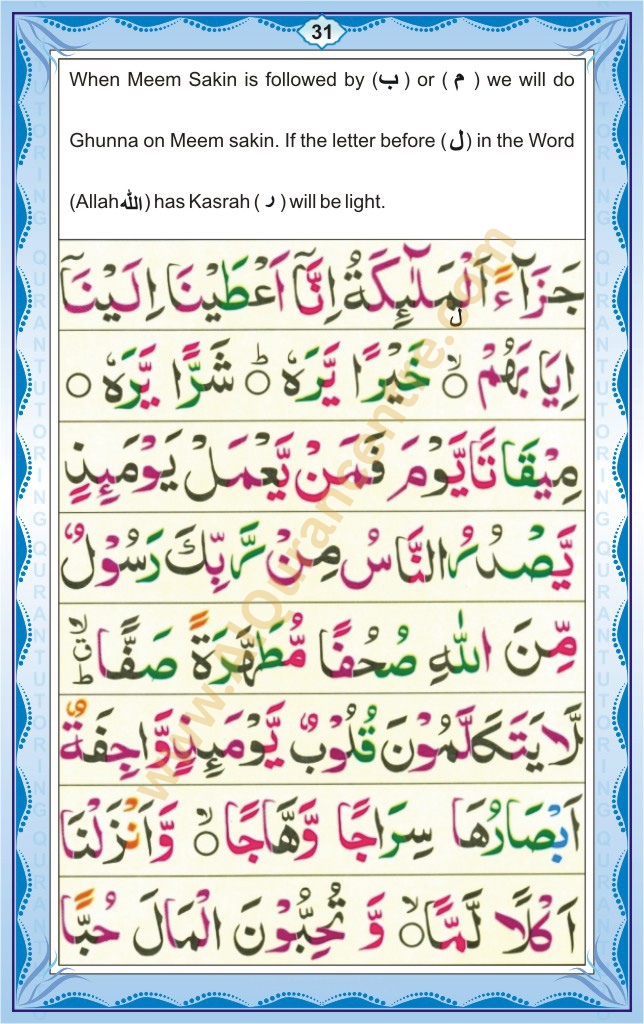 31
When Meem Sakin is followed by (ب) or ( م ) we will do
Ghunna on Meem sakin. If the letter before (ل) in the Word
(Allah الله) has Kasrah ( ر ) will be light.
جَزَآءً اَلْمَلٰٓئِكَةُ اِنَّآ اَعْطَيْنَا اِلَيْنَآ
ل
اِيَا بَهُمْ ۙ خَيْرًا يَّرَهٗ ؕ شَرًّا يَّرَهٗ
مِيْقَا تًا يَّوْمَ فَمَنْ يَّعْمَلْ يَوْمَئِذٍ
يَّصْدُرُ النَّاسُ مِنْ رَّبِّكَ رَسُوْلٌ
مِّنَ اللهِ صُحُفًا مُّطَهَّرَةً صَفًّا
لَّا يَتَكَلَّمُوْنَ قُلُوْبٌ يَّوْمَئِذٍ وَّاجِفَةٌ
اَبْصَارُهَا سِرَاجًا وَّهَّاجًا ۙ وَّاَنْزَلْنَا
اَكْلًا لَّمًّا ۙ وَّ تُحِبُّوْنَ الْمَالَ حُبًّا
www.AlQuransentre.com
QURAN TUTORING QURAN TUTORING
QURAN TUTORING QURAN TUTORING